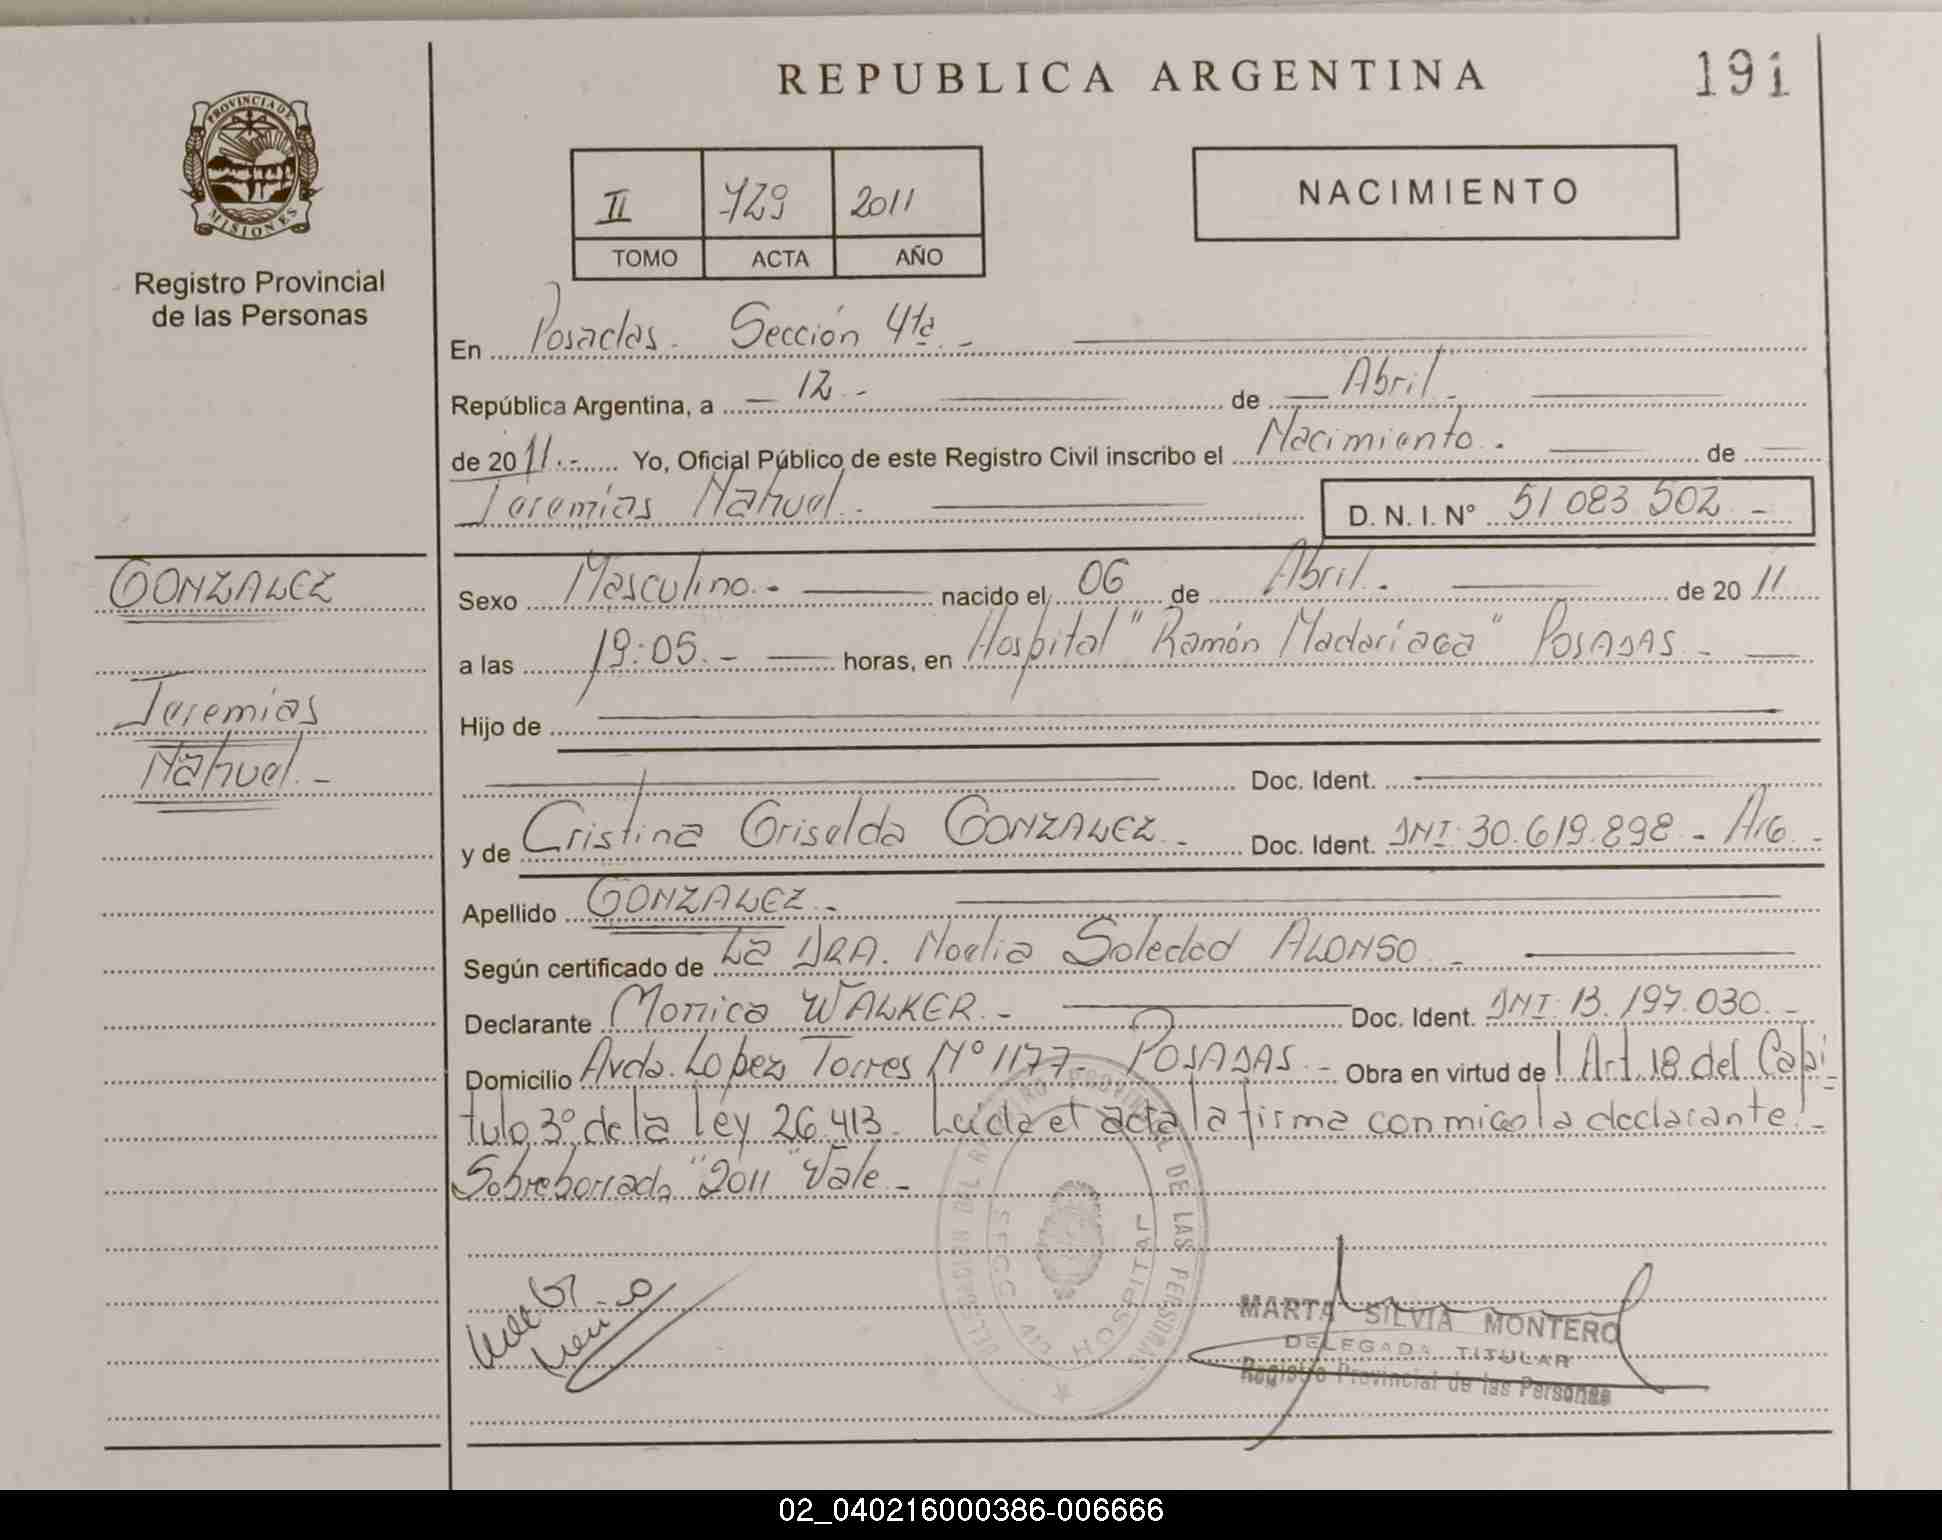 REPUBLICA ARGENTINA
191
PROVINCIA DE
MISIONES
Registro Provincial
de las Personas
II 729 2011
TOMO ACTA AÑO
NACIMIENTO
En Posadas. Sección 4ta.-
República Argentina, a - 12.- de Abril.-
de 2011.- Yo, Oficial Público de este Registro Civil inscribo el Nacimiento. de
Jeremías Nahuel.- D. N. I. N° 51 083 502 -
GONZALEZ
Jeremías
Nahuel.-
Sexo Masculino.- nacido el 06 de Abril.- de 2011
a las 19:05.- horas, en Hospital "Ramón Madariaga" POSADAS.-
Hijo de
Doc. Ident.
y de Cristina Griselda GONZALEZ.- Doc. Ident. DNI. 30.619.898.- Arg.-
Apellido GONZALEZ.-
Según certificado de La DRA. Noelia Soledad ALONSO.-
Declarante Monica WALKER.- Doc. Ident. DNI. 13.197.030.-
Domicilio Avda. Lopez Torres N° 1177- POSADAS.- Obra en virtud de l Art. 18 del Capi-
tulo 3° de la ley 26.413. Leida el acta la firma conmigo la declarante.-
Sobreborrado "2011" Vale.-
DELEGACION DEL REGISTRO PROVINCIAL DE LAS PERSONAS
SECC HOSPITAL
MARTA SILVIA MONTERO
DELEGADA TITULAR
Registro Provincial de las Personas
02_040216000386-006666